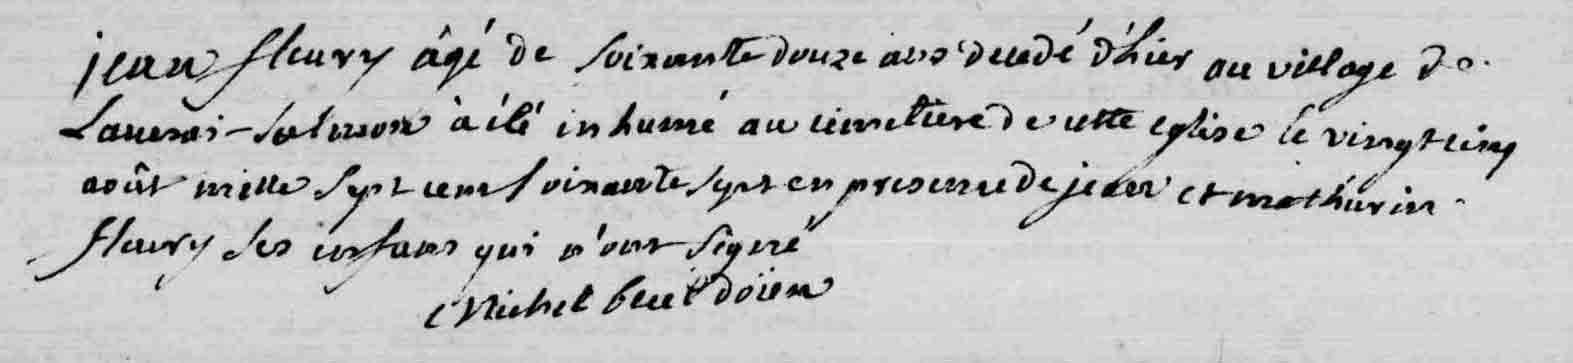 jean fleury âgé de soixante douze ans decedé d'hier au village de
Launai-Salmon à été inhumé au cimetiere de cette eglise le vingt cinq
août mille sept cent soixante sept en presence de jean et mathurin
fleury ses enfans qui n'ont signé
Michel doïen